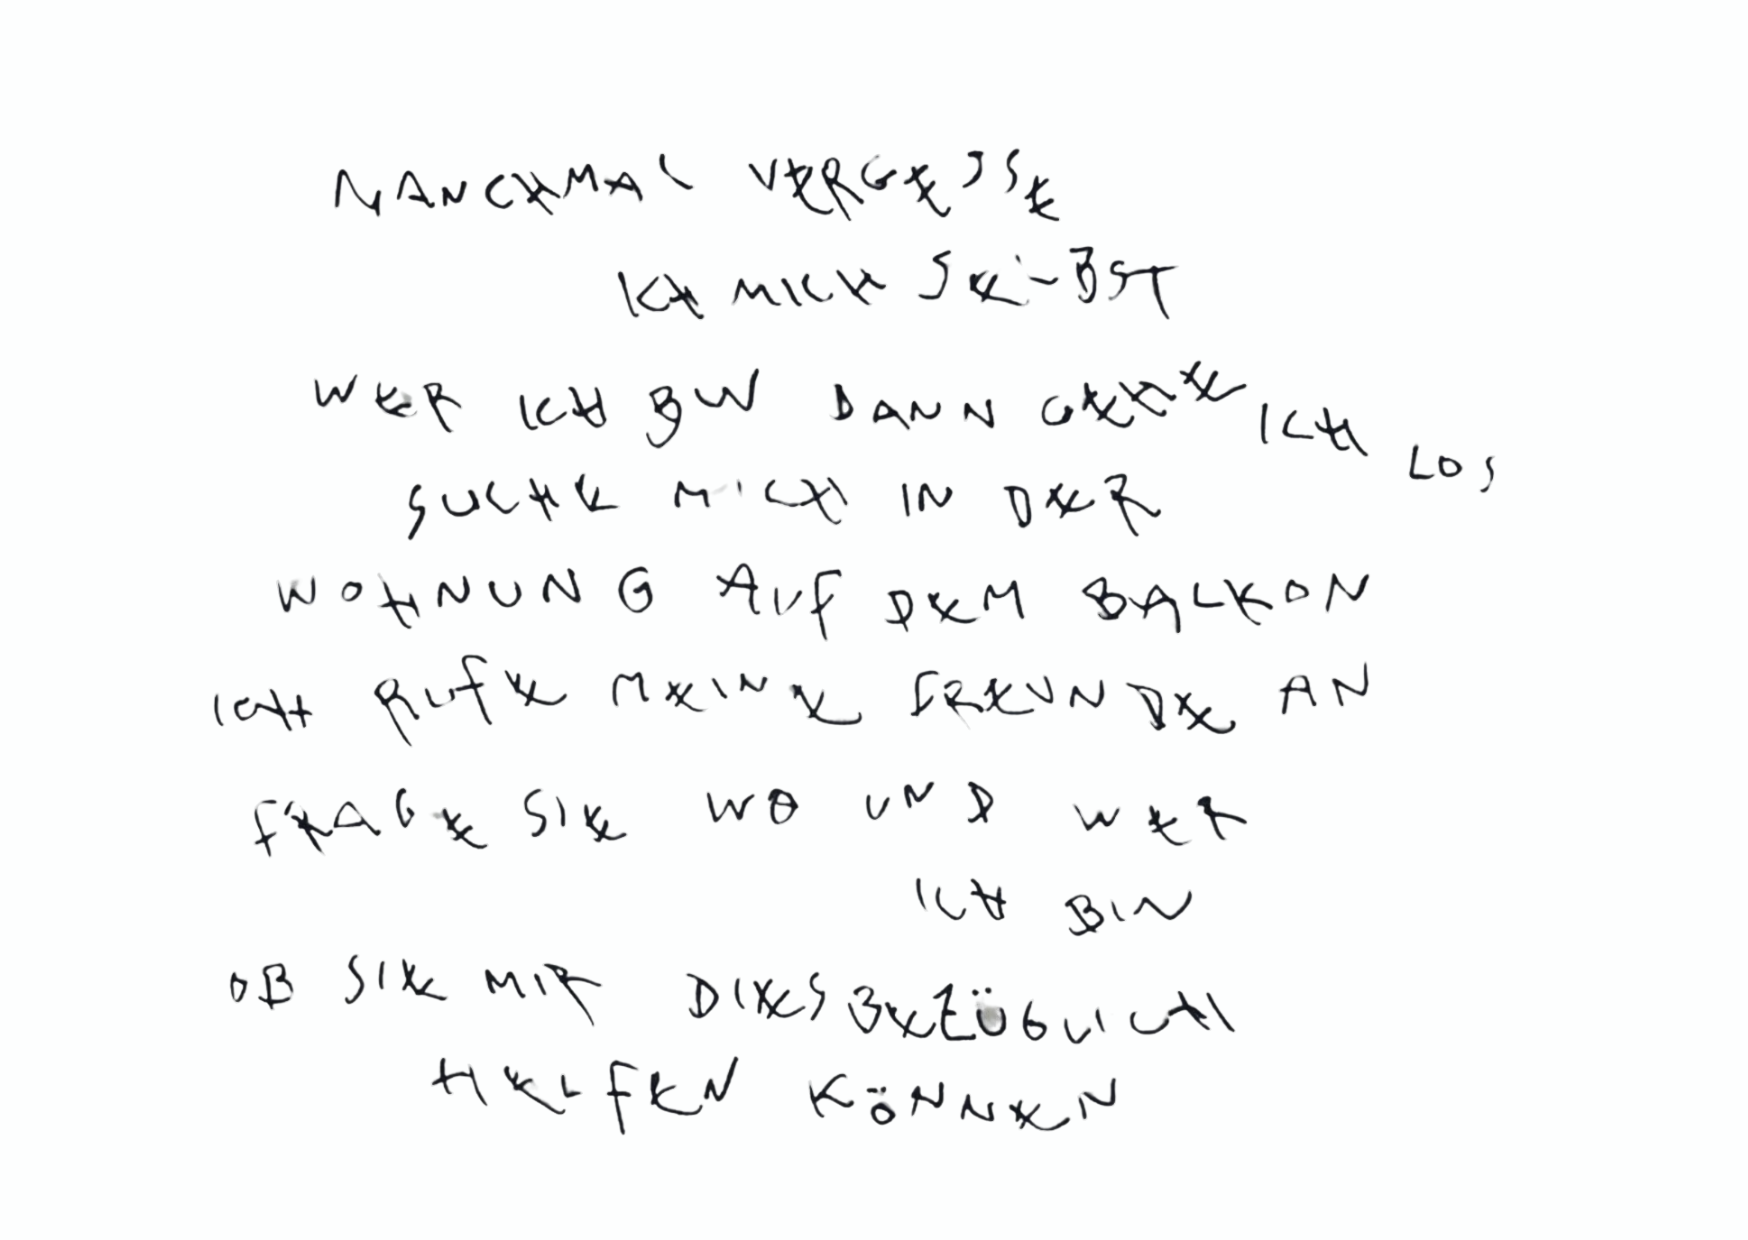 MANCHMAL VERGESSE
ICH MICH SELBST
WER ICH BIN DANN GEHE ICH LOS
SUCHE MICH IN DER
WOHNUNG AUF DEM BALKON
ICH RUFE MEINE FREUNDE AN
FRAGE SIE WO UND WER
ICH BIN
OB SIE MIR DIESBEZÜGLICH
HELFEN KÖNNEN